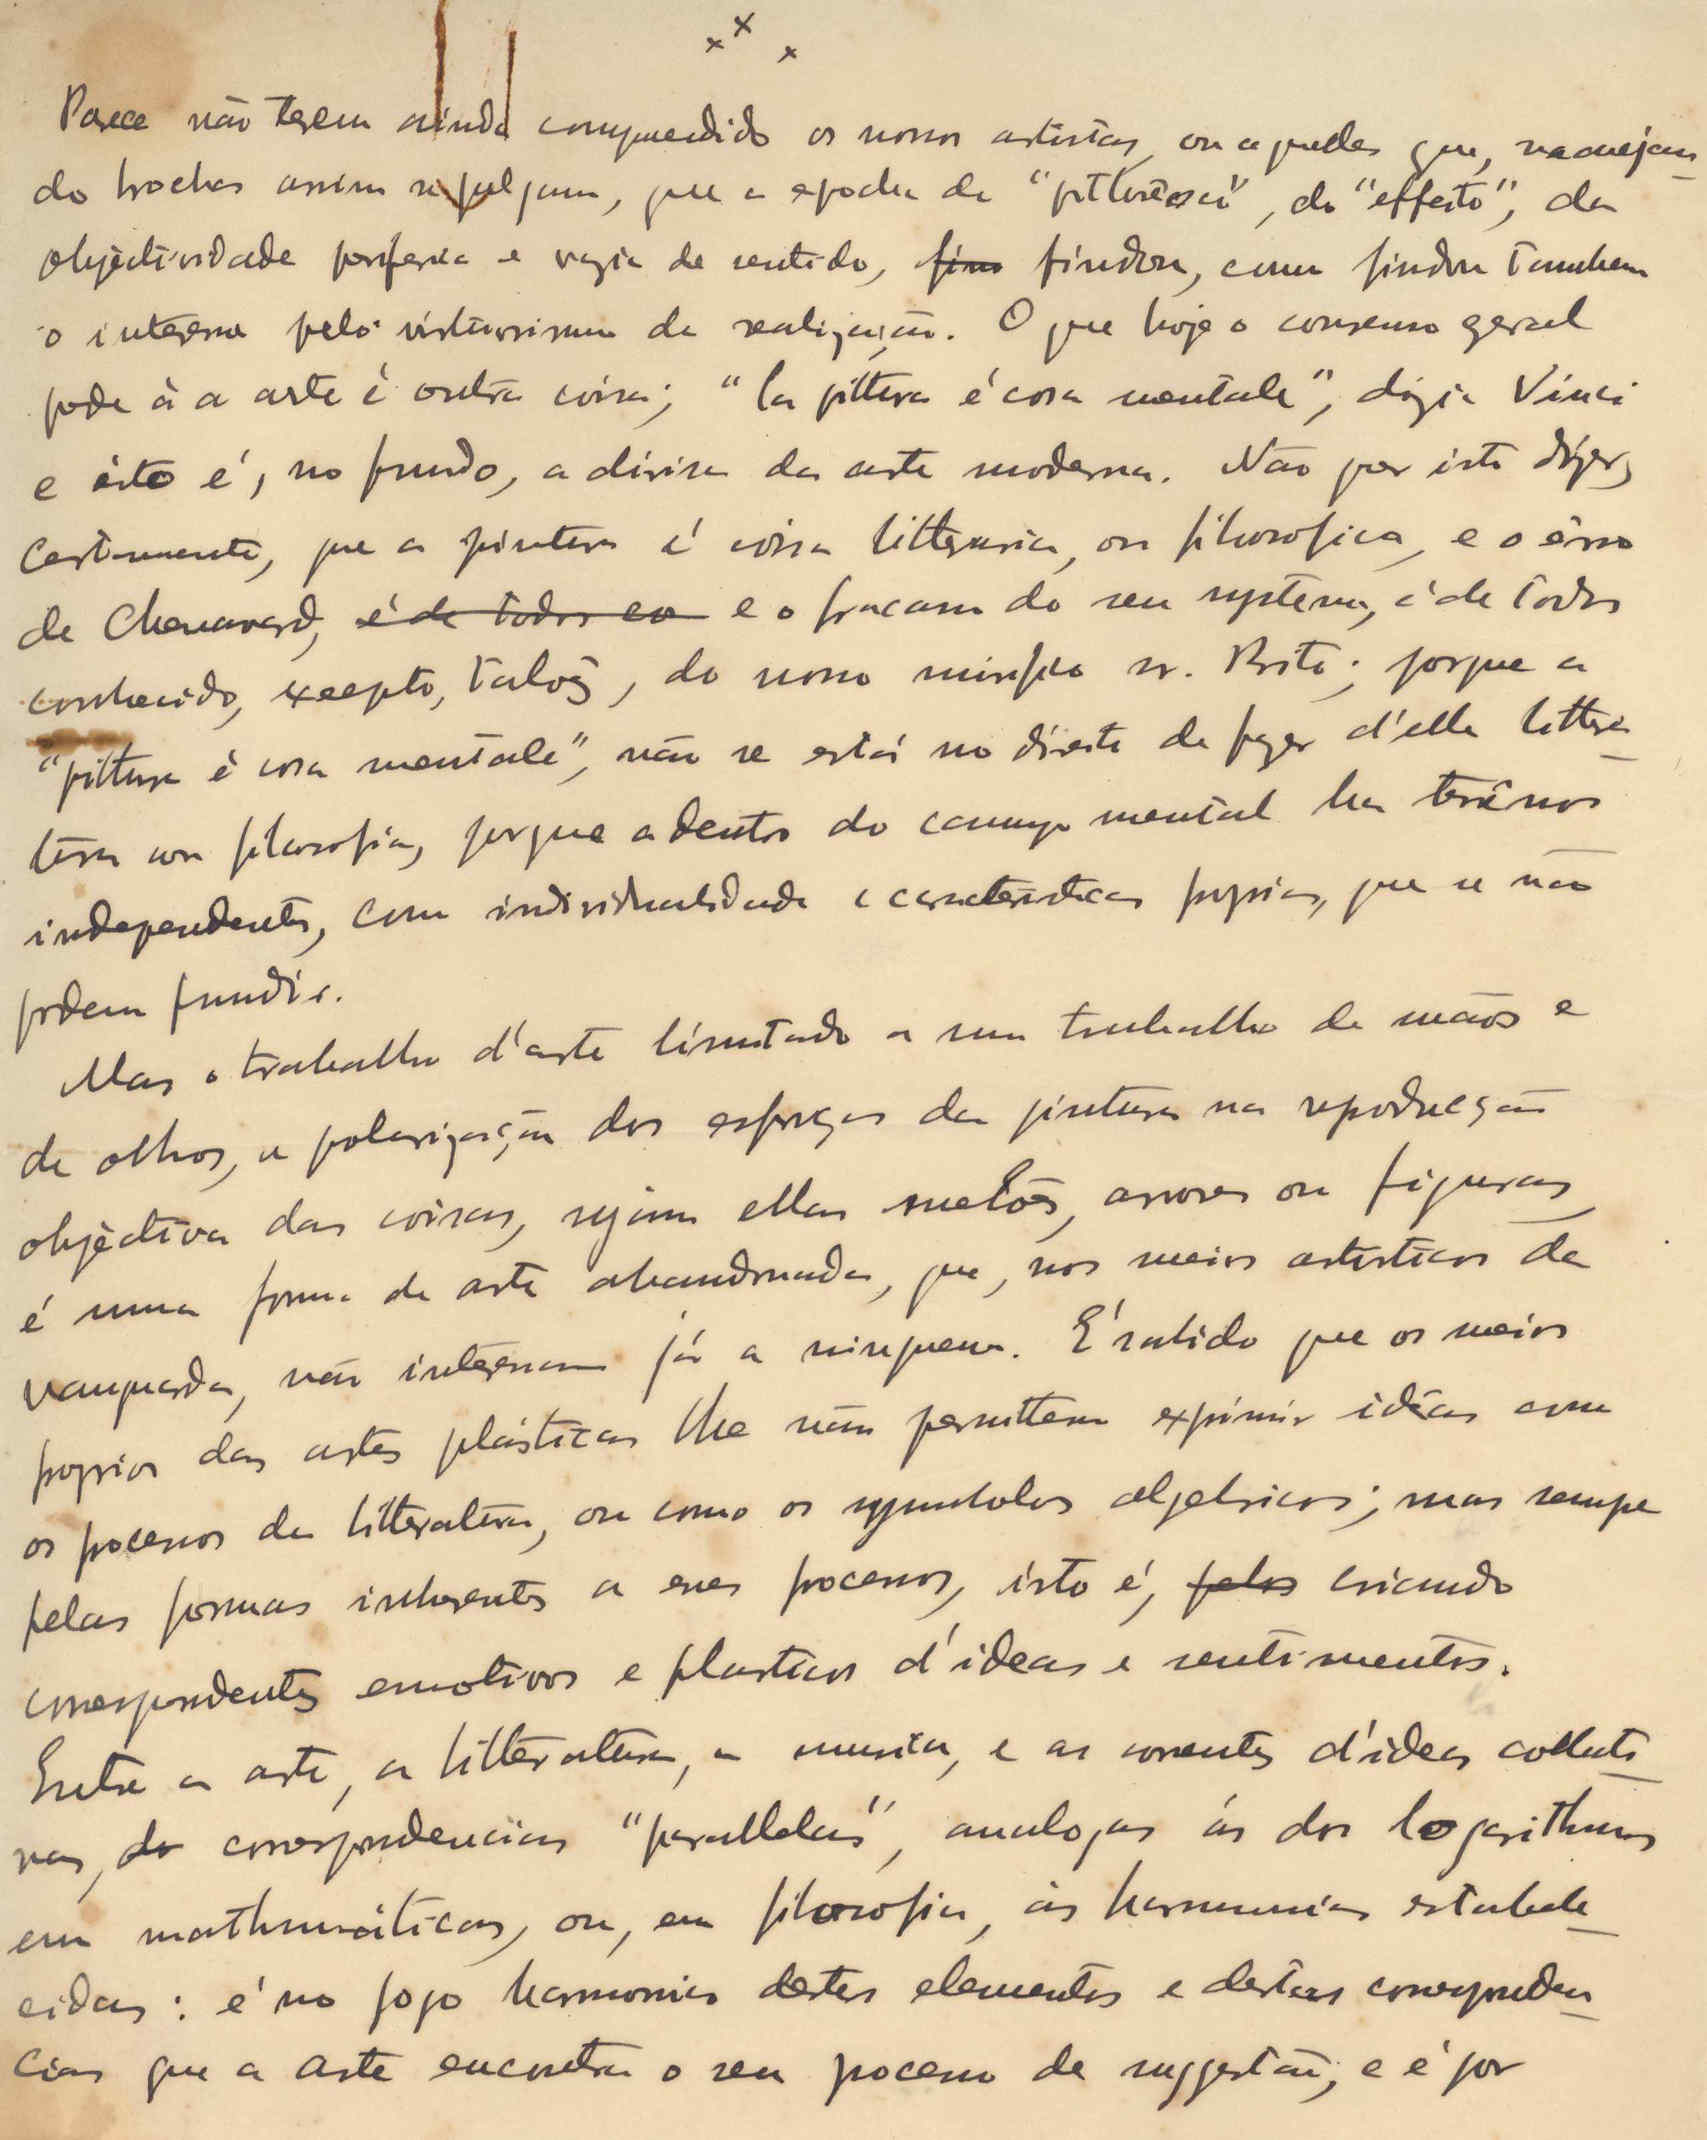 x x x
Parece não terem ainda comprendido os nossos artistas, ou aquelles que, manejan-
do brochas assim se julgam, que a epocha do "pittoresco", do "effeito", da
objèctividade periferica e vazia de sentido, fino findou, como findou tambem
o interesse pelo virtuosismo da realização. O que hoje o consenso geral
pede à a arte é outra coisa; "la pittura é cosa mentale", dizia Vinci
e isto é, no fundo, a divisa da arte moderna. Não quer isto dizer,
certamente, que a pintura é coisa litteraria, ou filosofica, e o êrro
de Chenavard, é de todos co e o fracasso do seu systema, é de todos
conhecido, excepto, talvêz, do nosso mirifico sr. Brito; porque a
"pittura è cosa mentale", não se está no direito de fazer d'ella littera-
tura ou filosofia, porque adentro do campo mental ha terrênos
independentes, com individualidade e caracteristicas proprias, que se não
podem fundir.
Mas o trabalho d'arte limitado a um trabalho de mãos e
de olhos, a polarização dos esforços da pintura na reproducção
objèctiva das coisas, sejam ellas melões, arvores ou figuras,
é uma forma de arte abandonada, que, nos meios artisticos da
vanguarda, não interessam já a ninguem. É sabido que os meios
proprios das artes plásticas lhe não permittem exprimir idéas com
os processos da litteratura, ou como os symbolos algebricos; mas sempre
pelas formas inherentes a esses processos, isto é, pelos criando
correspondentes emotivos e plasticos d'ideas e sentimentos.
Entre a arte, a litteratura, a musica, e as correntes d'ideas collecti-
vas, da correspondencias "parallelas", analogas ás dos logarithmos
em mathmáticas, ou, em filosofia, ás harmonias estabele-
cidas: é no jogo harmonico destes elementos e destas corresponden-
cias que a arte encontra o seu processo de suggestão; e é por